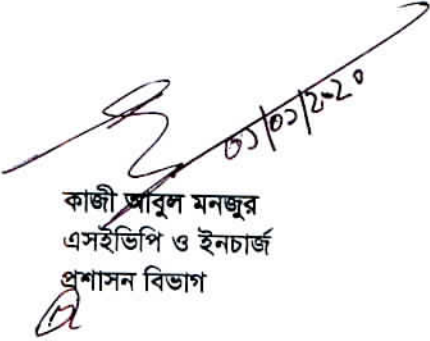 ০১/০১/২০২০
কাজী আবুল মনজুর
এসইভিপি ও ইনচার্জ
প্রশাসন বিভাগ